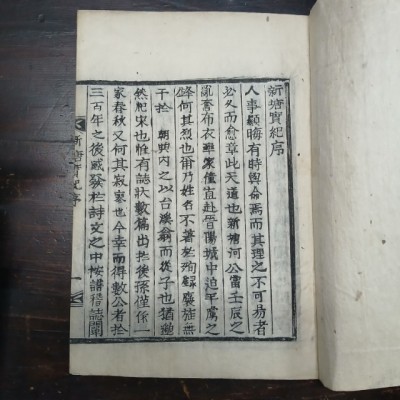 新塘實紀序
人事顯晦有時與命焉而其理之不可易者
必久而愈章此天道也新塘河公當壬辰之
亂奮布衣 家僮直赴晋陽城中迫年虜之
鋒何其烈也甫乃姓名不著於殉録褒施無
干於 朝典内之以台溪翁而從子也猶
然紀宋也惟有誌狀數篇出於後孫僅依一
家春秋又何其寂寞也今幸而得數公者於
三百年之後或發於詩文之中按譜稽誌闡
新塘實紀序
一